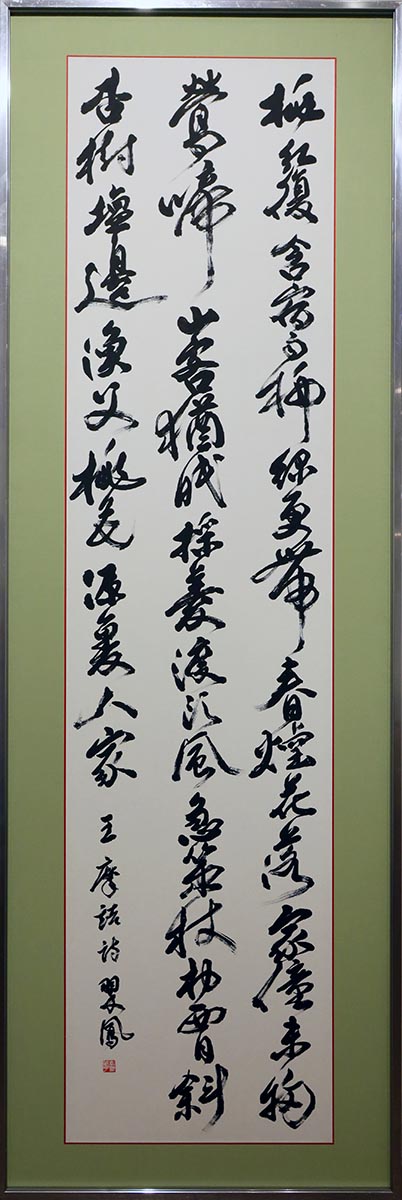 桃紅復含宿雨柳綠更帶春煙花落家僮未掃
鶯啼山客猶眠採菱渡頭風急策杖村西日斜
杏樹壇邊漁父桃花源裏人家 王摩詰詩 翠鳳